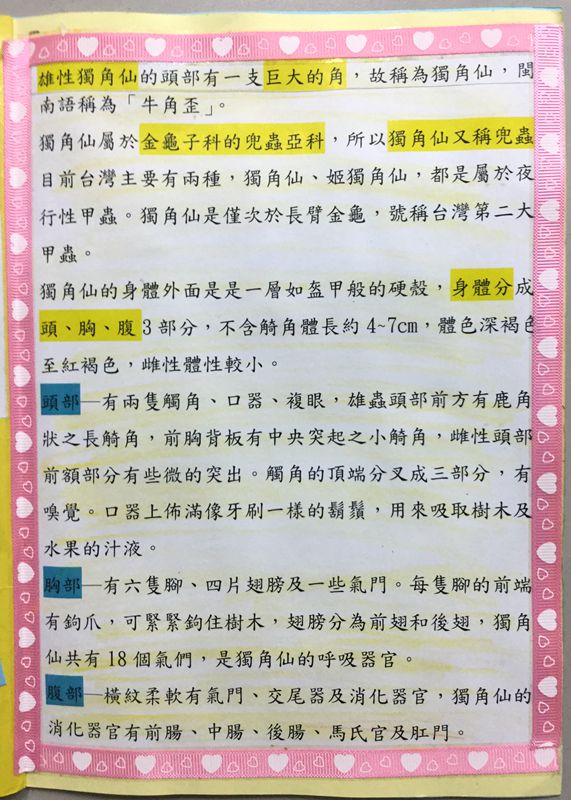 雄性獨角仙的頭部有一支巨大的角，故稱為獨角仙，閩
南語稱為「牛角歪」。
獨角仙屬於金龜子科的兜蟲亞科，所以獨角仙又稱兜蟲
目前台灣主要有兩種，獨角仙、姬獨角仙，都是屬於夜
行性甲蟲。獨角仙是僅次於長臂金龜，號稱台灣第二大
甲蟲。
獨角仙的身體外面是是一層如盔甲般的硬殼，身體分成
頭、胸、腹3部分，不含觭角體長約4~7cm，體色深褐色
至紅褐色，雌性體性較小。
頭部—有兩隻觸角、口器、複眼，雄蟲頭部前方有鹿角
狀之長觭角，前胸背板有中央突起之小觭角，雌性頭部
前額部分有些微的突出。觸角的頂端分叉成三部分，有
嗅覺。口器上佈滿像牙刷一樣的鬍鬚，用來吸取樹木及
水果的汁液。
胸部—有六隻腳、四片翅膀及一些氣門。每隻腳的前端
有鉤爪，可緊緊鉤住樹木，翅膀分為前翅和後翅，獨角
仙共有18個氣們，是獨角仙的呼吸器官。
腹部—橫紋柔軟有氣門、交尾器及消化器官，獨角仙的
消化器官有前腸、中腸、後腸、馬氏官及肛門。